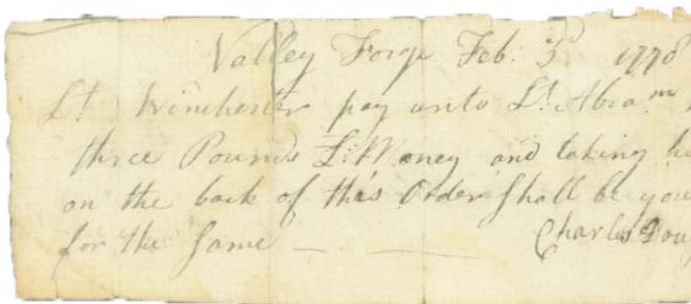 Valley Forge Feb. 3d 1778
Lt Winchester pay unto Lt. Abra.m
three Pounds L: Money and taking he
on the back of this Order Shall be you
for the Same — — Charles Doug